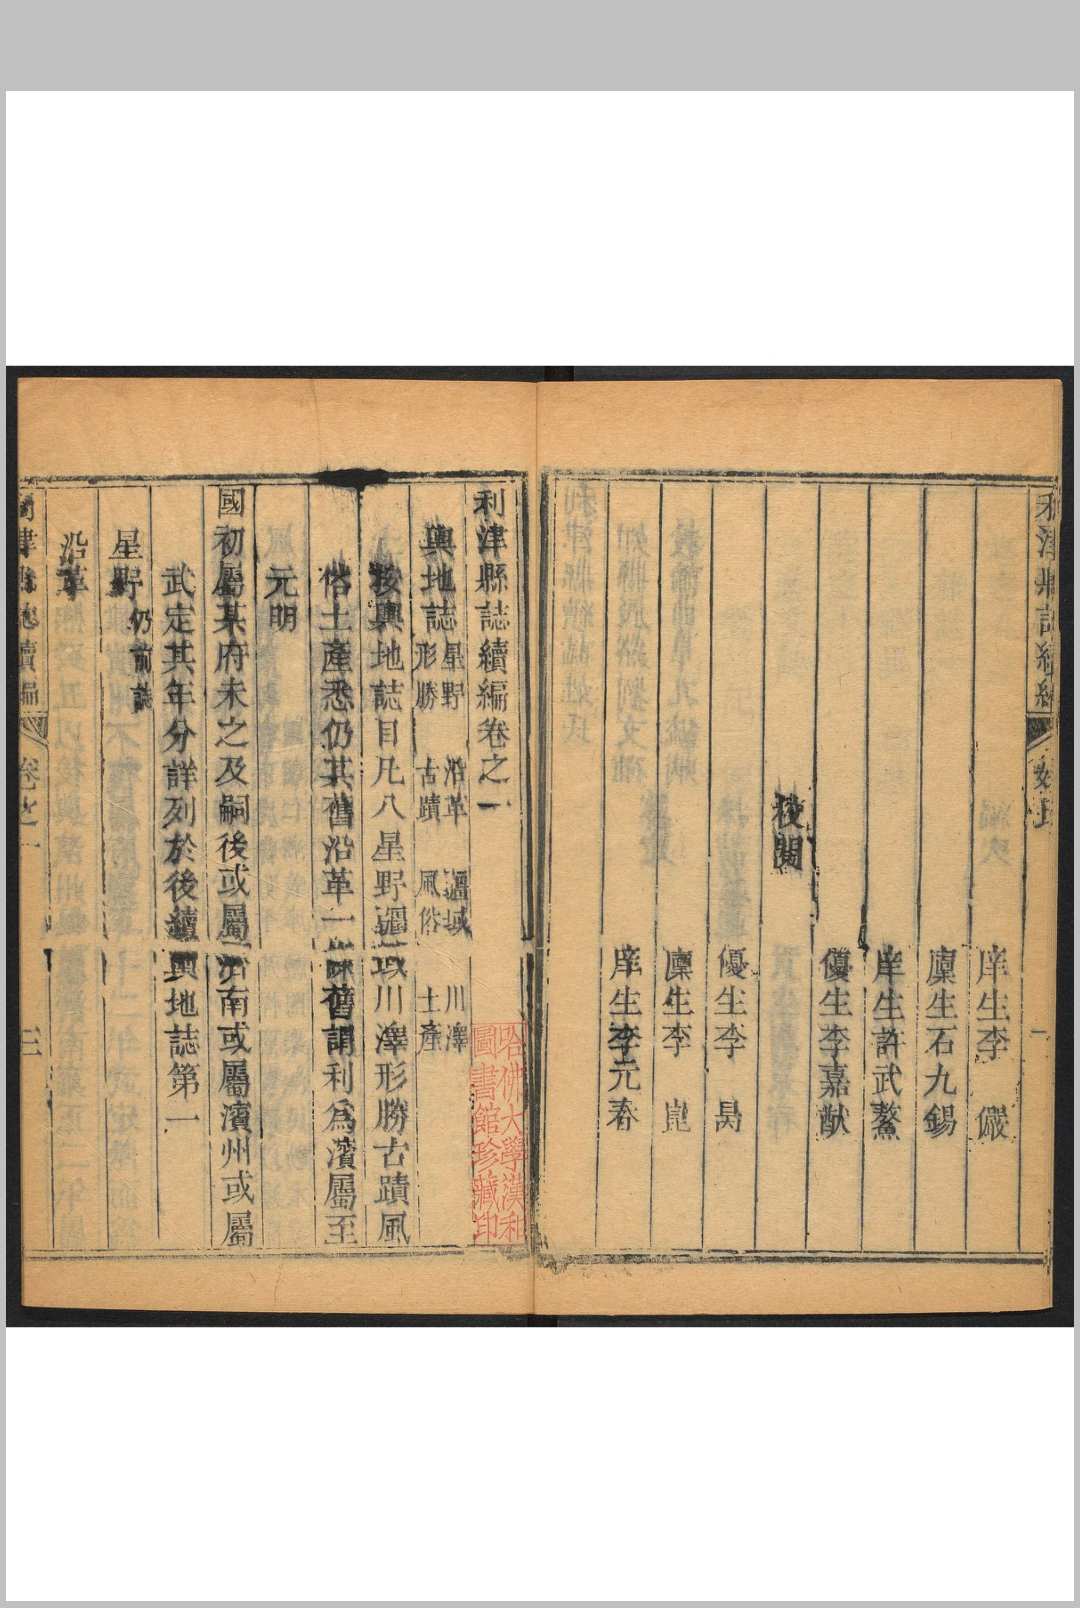 利津縣誌續編
姓氏
一
庠生李 儼
廩生石九錫
庠生許武鰲
優生李嘉猷
校閱
優生李 昺
廩生李 崑
庠生李元春
利津縣誌續編卷之一
輿地誌 星野 沿革 疆域 川澤
形勝 古蹟 風俗 土產
按輿地誌目凡八星野疆域川澤形勝古蹟風
俗土產悉仍其舊沿革一條舊謂利爲濱屬至
元明
國初屬某府未之及嗣後或屬濟南或屬濱州或屬
武定其年分詳列於後續輿地誌第一
星野 仍前誌
沿革
利津縣志續編
卷之一
三
哈佛大學漢和
圖書館珍藏印